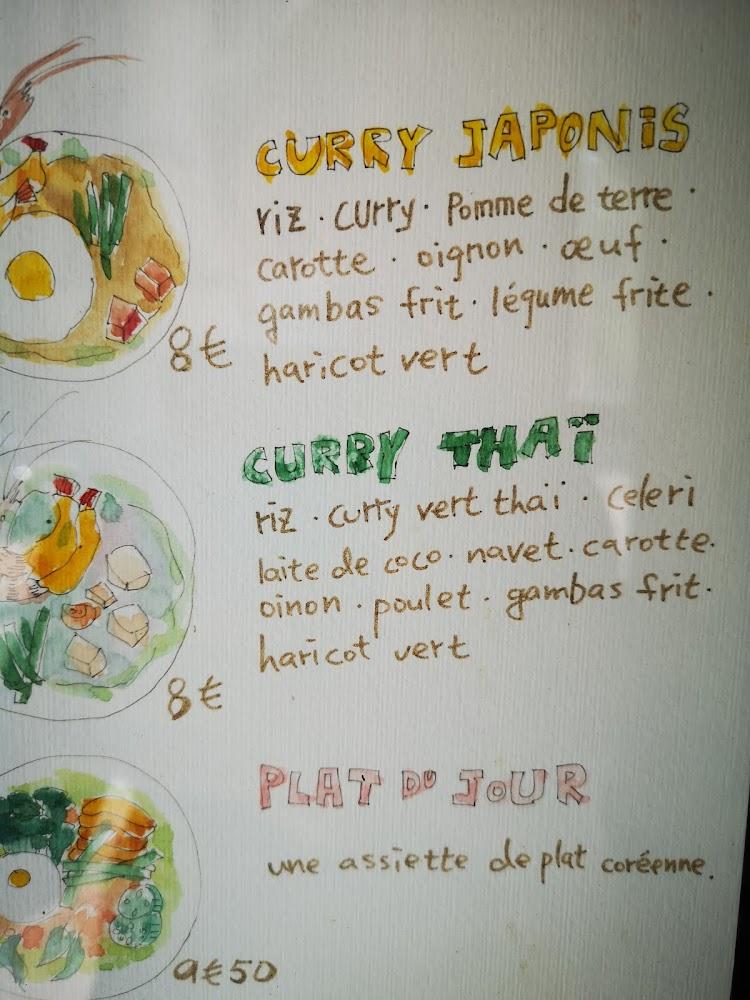 CURRY JAPONiS
riz · curry · Pomme de terre ·
carotte · oignon · œuf ·
gambas frit · légume frite ·
haricot vert
8€
CURRY THAÏ
riz · curry vert thaï · celeri
laite de coco · navet · carotte ·
oinon · poulet · gambas frit ·
haricot vert
8€
PLAT DU JOUR
une assiette de plat coréenne.
9€50